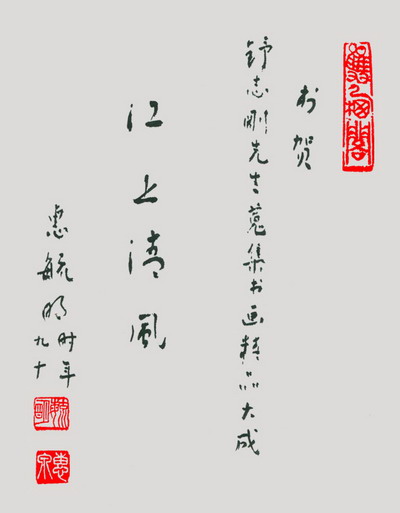 书贺
舒志刚先生蒐集书画精品大成
江上清风
惠毓明
时年
九十